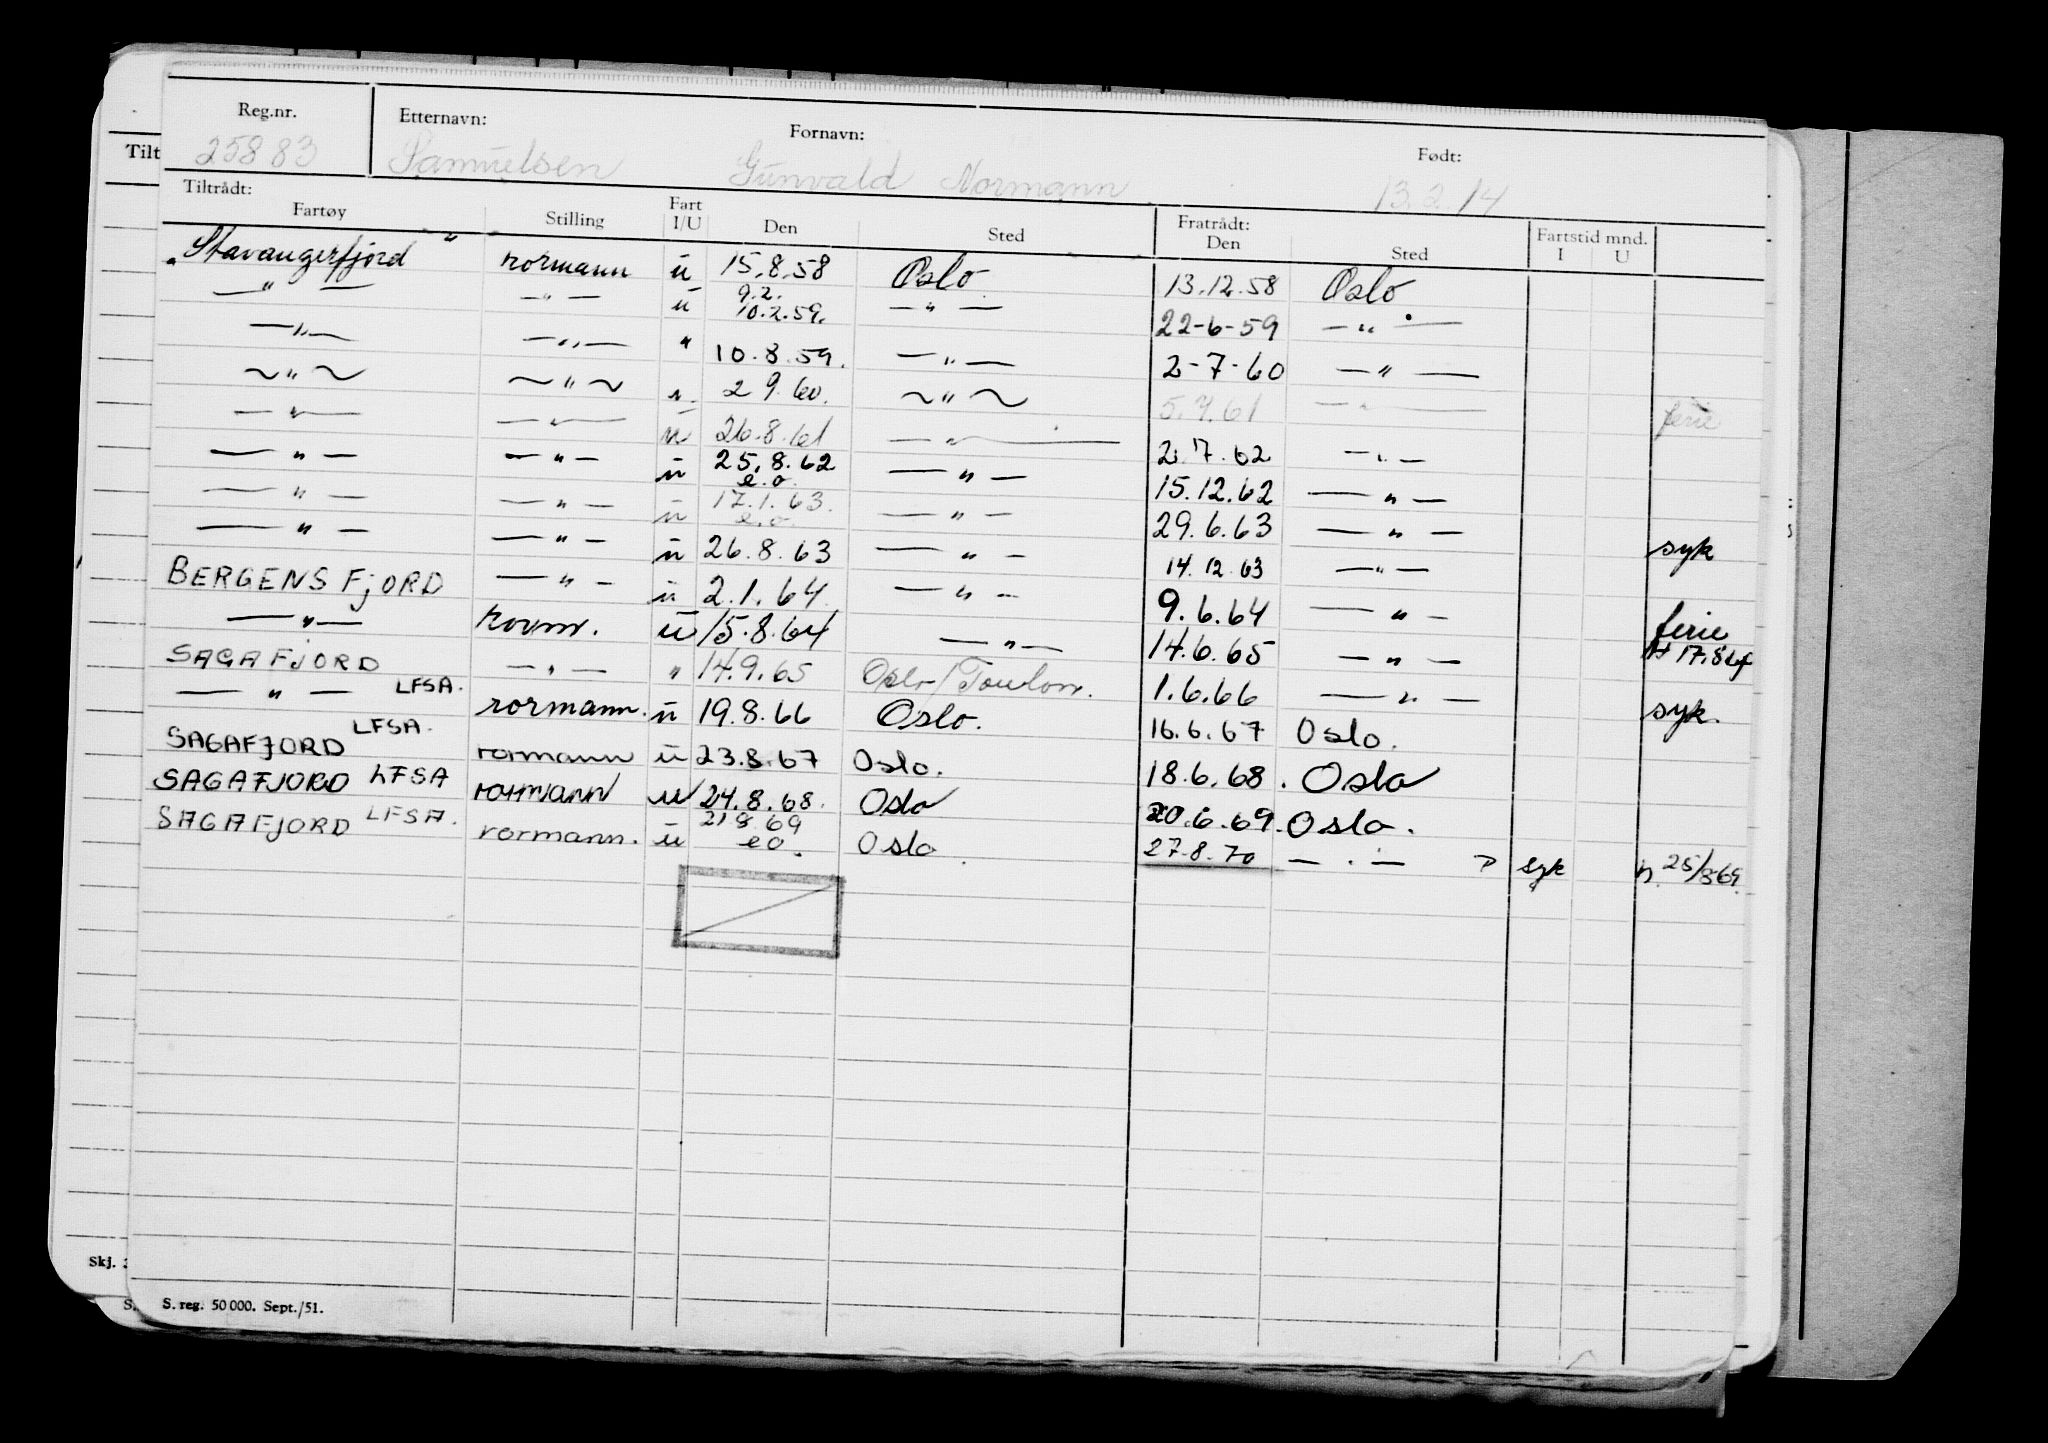 Reg.nr. Etternavn: Fornavn: Født:
25883 Samuelsen Gunvald Normann 13.2.14
Tilt
Tiltrådt: Fratrådt:
Fartøy Stilling Fart I/U Den Sted Den Sted Fartstid mnd. I U
"Stavangerfjord" rormann u 15.8.58 Oslo 13.12.58 Oslo
— " — — " — u 9.2. 10.2.59. — " — 22-6-59 — " —
— " — — " — " 10.8.59. — " — 2-7-60 — " —
~ " ~ ~ " ~ u. 2 9.60. ~ " ~ 5.7.61 — " — ferie
— " — — " — u 26.8.61 — " — 2.7.62 — " —
— " — — " — u 25.8.62 e.o. — " — 15.12.62 — " —
— " — — " — u 17.1.63. e.o. — " — 29.6.63 — " — syk
— " — — " — u 26.8.63 — " — 14.12.63 — " —
BERGENSFJORD — " — u 2.1.64 — " — 9.6.64 — " — ferie
— " — rorm. u 15.8.64 — " — 14.6.65 — " — 17.8.64
SAGAFJORD — " — " 14.9.65 Oslo/Toulon. 1.6.66 — " — syk.
— " — LFSA. rormann. u 19.8.66 Oslo. 16.6.67 Oslo.
SAGAFJORD LFSA. rormann u 23.8.67 Oslo. 18.6.68. Oslo
SAGAFJORD LFSA rormann u 24.8.68. Oslo 20.6.69. Oslo.
SAGAFJORD LFSA. rormann. u 21.8.69 eo. Oslo 27.8.70 — " — syk 25/8-69.
Skj.
S. S. reg. 50 000. Sept./51.